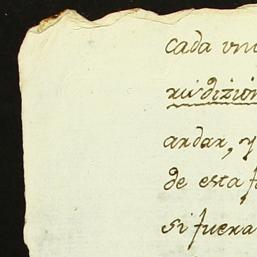 cada vni
rudizion
andar, y
de esta f
si fuera